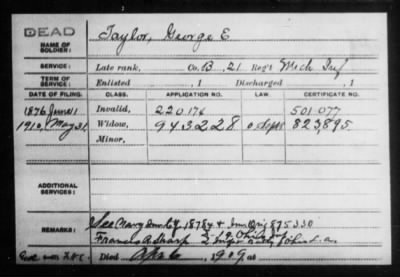 DEAD
NAME OF SOLDIER: Taylor, George E
SERVICE: Late rank, Co. B, 21 Reg't Mich Inf
TERM OF SERVICE: Enlisted , 1 Discharged , 1
DATE OF FILING. CLASS. APPLICATION NO. LAW. CERTIFICATE NO.
1876 June 1 Invalid, 220176 501.077
1910, May 31 Widow, 943228 823,895
Minor,
ADDITIONAL SERVICES:
See Navy 18784 +
REMARKS: Francis A Sharp
Died 1909 at